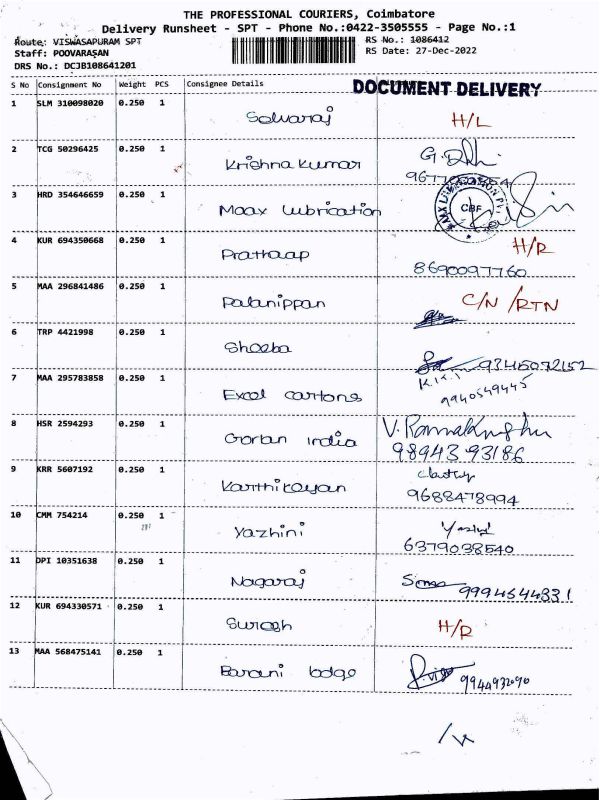 THE PROFESSIONAL COURIERS, Coimbatore
Delivery Runsheet - SPT - Phone No.:0422-3505555 - Page No.:1
Route: VISWASAPURAM SPT
RS No.: 1086412
Staff: POOVARASAN
RS Date: 27-Dec-2022
DRS No.: DCJB108641201
S No Consignment No Weight PCS Consignee Details DOCUMENT DELIVERY
1 SLM 310098020 0.250 1 Selvaraj H/L
2 TCG 50296425 0.250 1 Krishna Kumar
3 HRD 354646659 0.250 1 Maax Lubrication CBF
4 KUR 694350668 0.250 1 Prathaap H/R
8690097760
5 MAA 296841486 0.250 1 Palanippan C/N /RTN
6 TRP 4421998 0.250 1 Sheeba 9345072152
7 MAA 295783858 0.250 1 Excel cartons K.K.
9940549445
8 HSR 2594293 0.250 1 Gorban india V. Ramakrishnan
9894393186
9 KRR 5607192 0.250 1 Karthikeyan
9688478994
10 CMM 754214 0.250 1 Yazhini
6379038540
11 DPI 10351638 0.250 1 Nagaraj 9994544331
12 KUR 694330571 0.250 1 Suresh H/R
13 MAA 568475141 0.250 1 Barani lodge 9944932090